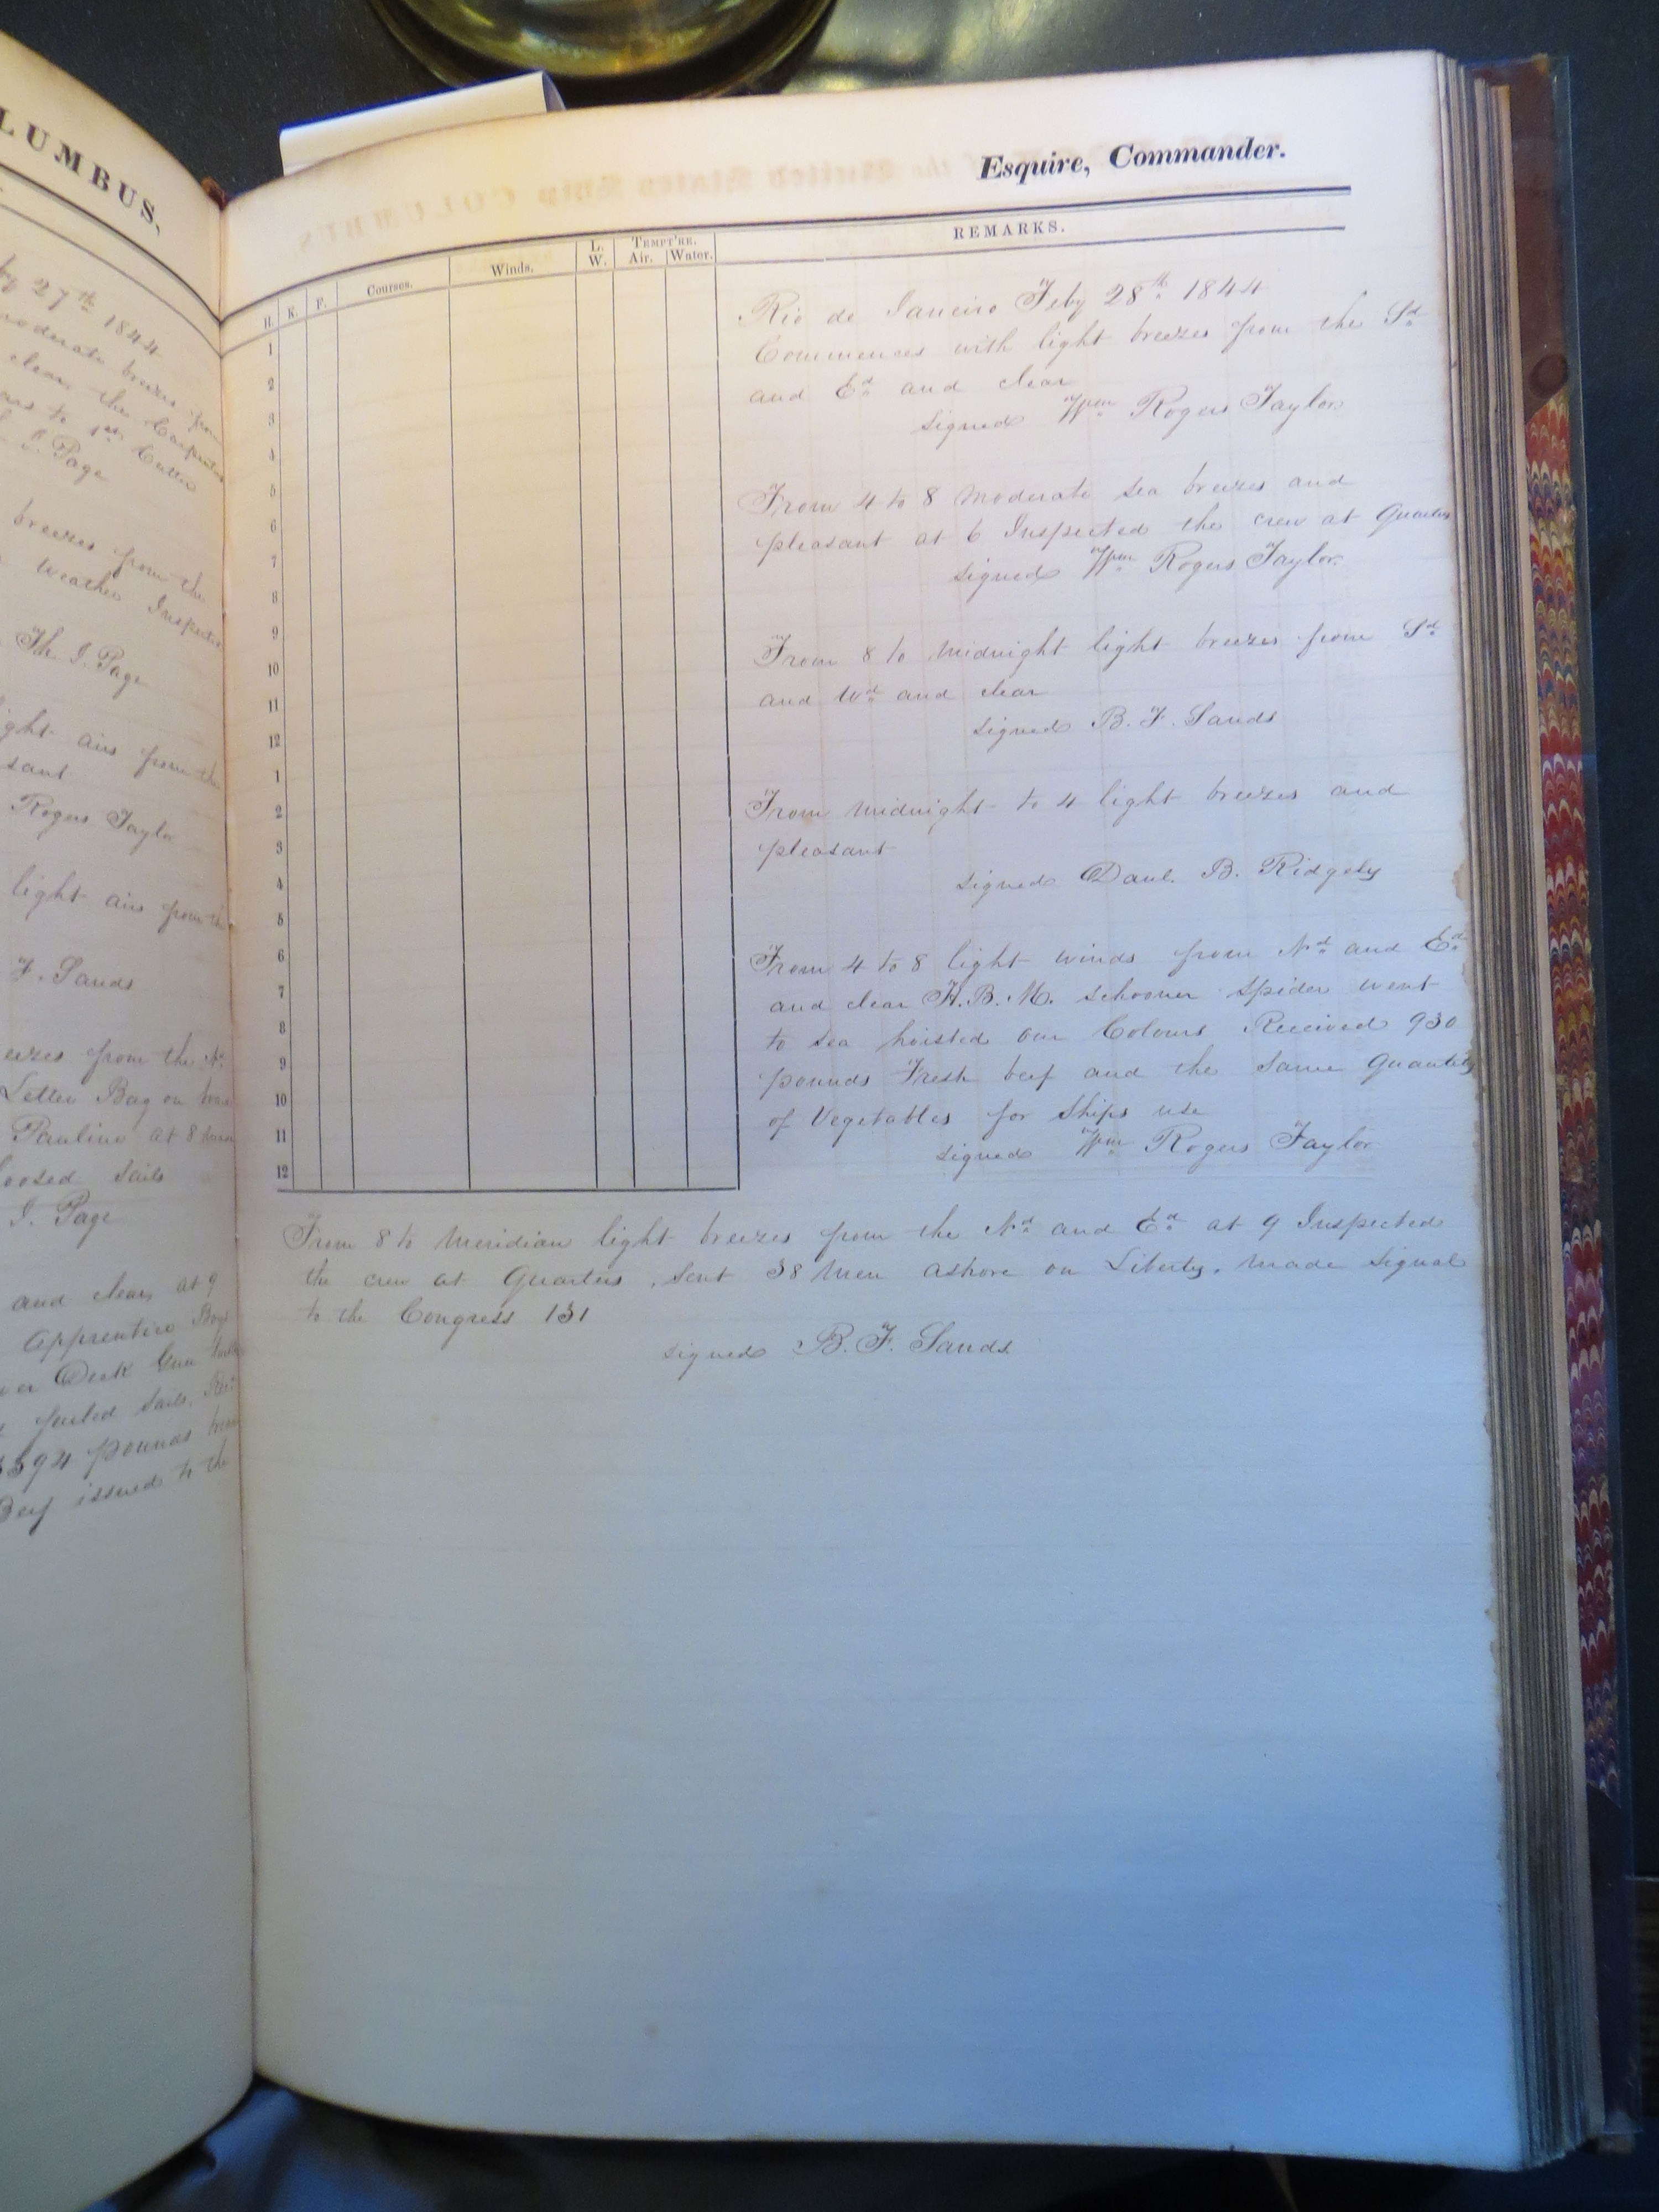 LUMBUS.
27th 1844
moderate breezes from
clear, the Carpenter
to 1st Cutter
J. Page
breezes from the
Weather Inspected
Th. J. Page
airs from the
Rogers Taylor
light airs from the
F. Sands
from the Nd
Letter Bag on
Paulino at 8
Sails
J. Page
and clear, at 9
Apprentice Boys
Deck Gun
furled Sails,
pounds
Beef issued to the
Esquire, Commander.
H. K. F. Courses. Winds. L. W. TEMPT'RE. Air. Water. REMARKS.
1
2
3
4
5
6
7
8
9
10
11
12
1
2
3
4
5
6
7
8
9
10
11
12
Rio de Janeiro Feby 28th 1844
Commences with light breezes from the Sd
and Ed and clear
signed Wm Rogers Taylor
From 4 to 8 Moderate Sea breezes and
pleasant at 6 Inspected the crew at Quarters
signed Wm Rogers Taylor.
From 8 to Midnight light breezes from Sd
and Wd and clear
signed B. F. Sands
From Midnight to 4 light breezes and
pleasant
signed Danl. B. Ridgely
From 4 to 8 light winds from Nd and Ed
and clear H.B.M. Schooner Spider went
to sea hoisted our Colours Received 930
pounds Fresh beef and the Same Quantity
of Vegetables for Ships use
signed Wm Rogers Taylor
From 8 to Meridian light breezes from the Nd and Ed at 9 Inspected
the crew at Quarters, Sent 38 Men ashore on Liberty, made Signal
to the Congress 131
signed B. F. Sands